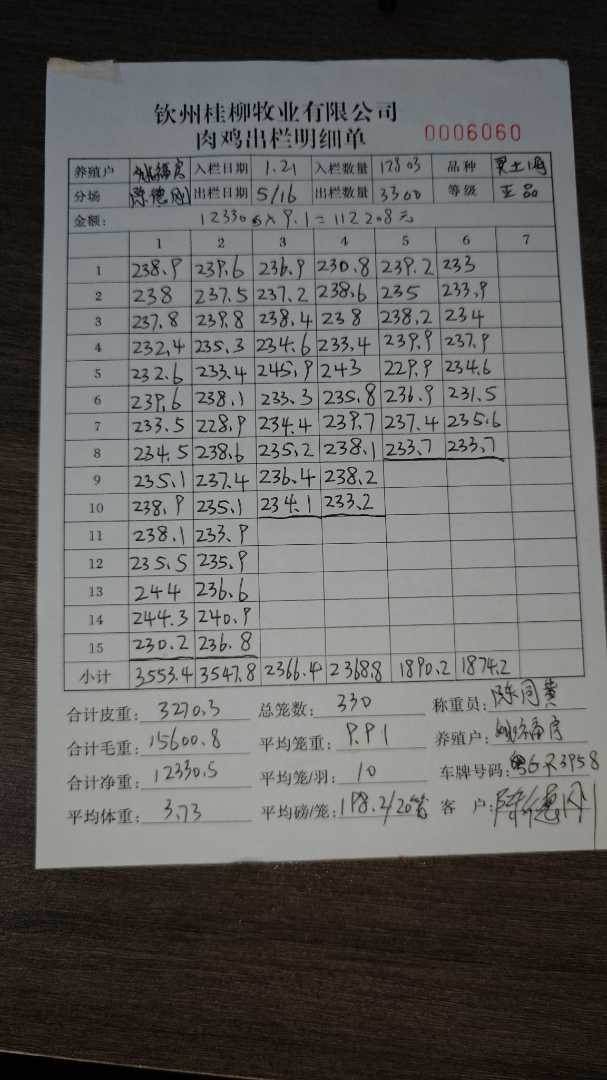 钦州桂柳牧业有限公司
肉鸡出栏明细单 0006060
养殖户 福房 入栏日期 1.21 入栏数量 12803 品种 土
分场 陈德刚 出栏日期 5/16 出栏数量 3300 等级 正品
金额: 12330.5×9.1=112208元
1 2 3 4 5 6 7
1 238.9 239.6 236.9 230.8 239.2 233
2 238 237.5 237.2 238.6 235 233.9
3 237.8 239.8 238.4 238 238.2 234
4 232.4 235.3 234.6 233.4 239.9 237.9
5 232.6 233.4 245.9 243 229.9 234.6
6 239.6 238.1 233.3 235.8 236.9 231.5
7 233.5 228.9 234.4 239.7 237.4 235.6
8 234.5 238.6 235.2 238.1 233.7 233.7
9 235.1 237.4 236.4 238.2
10 238.9 235.1 234.1 233.2
11 238.1 233.9
12 235.5 235.9
13 244 236.6
14 244.3 240.9
15 230.2 236.8
小计 3553.4 3547.8 2366.4 2368.8 1890.2 1874.2
合计皮重: 3270.3 总笼数: 330 称重员: 陈同贵
合计毛重: 15600.8 平均笼重: 9.91 养殖户: 福房
合计净重: 12330.5 平均笼/羽: 10 车牌号码: 粤G23958
平均体重: 3.73 平均磅/笼: 198.2/20笼 客 户: 陈德刚